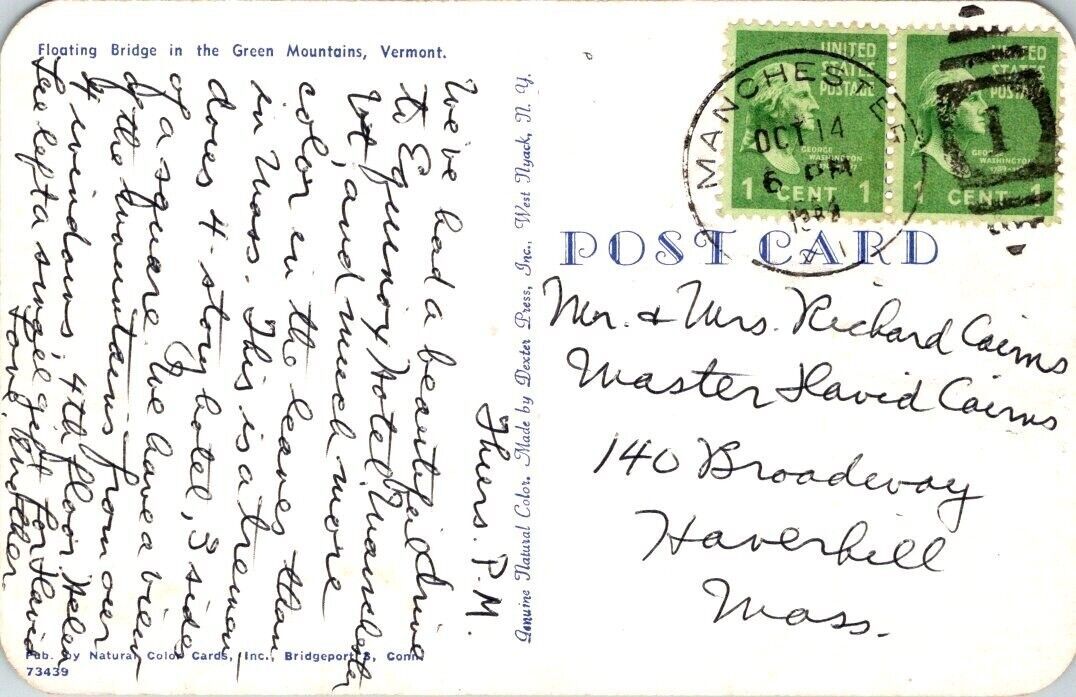 Floating Bridge in the Green Mountains, Vermont.
Thurs. P.M.
We've had a beautiful drive
to Equinox Hotel, Manchester
Vt, and much more
color in the leaves than
in Mass. This is a tremen
dous 4-story hotel, 3 sides
of a square. We have a view
of the mountains from our
4 windows, 4th floor. Helen
Lee left a small gift for David
Love, Mother.
Pub. by Natural Color Cards, Inc., Bridgeport 3, Conn.
73439
Genuine Natural Color. Made by Dexter Press, Inc., West Nyack, N. Y.
MANCHESTER
OCT 14
6 PM
UNITED
STATES
POSTAGE
GEORGE
WASHINGTON
1 CENT 1
UNITED
STATES
POSTAGE
GEORGE
WASHINGTON
1 CENT 1
1
POST CARD
Mr. & Mrs. Richard Cairns
Master David Cairns
140 Broadway
Haverhill
Mass.